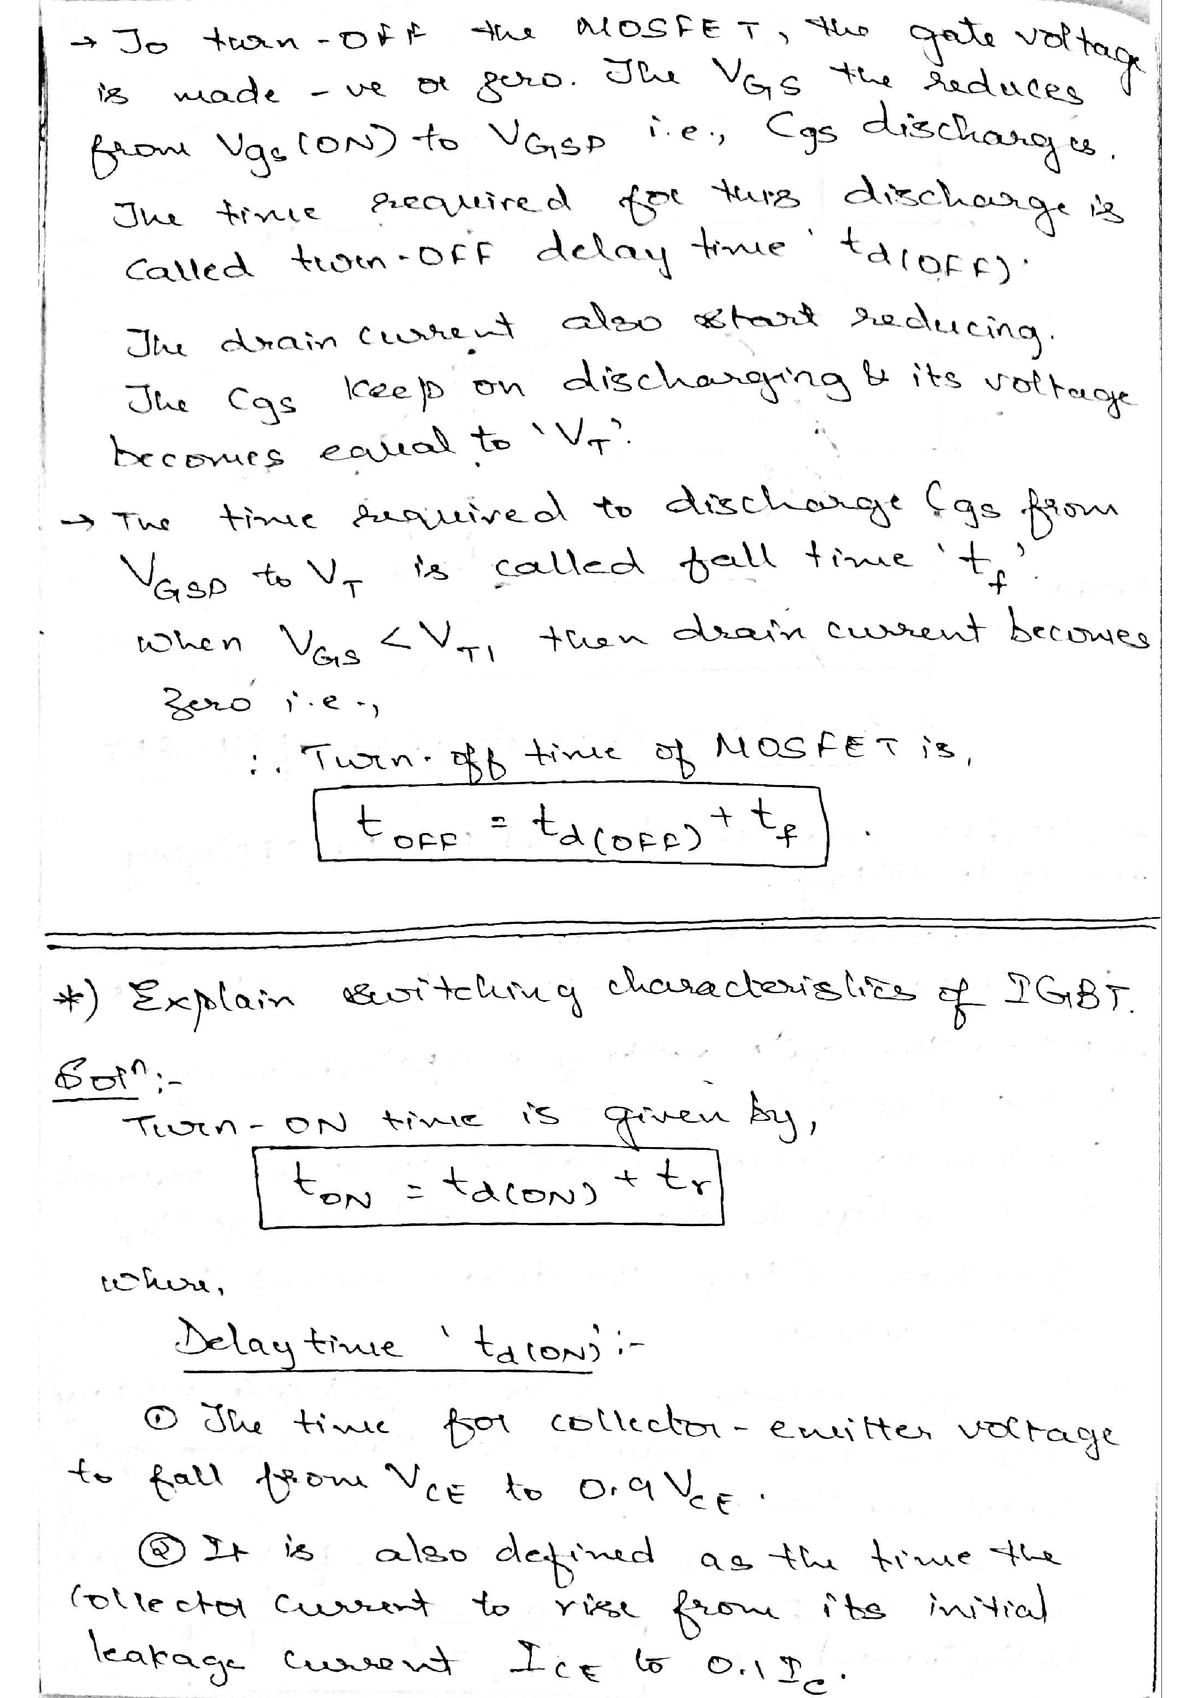 → To turn-OFF the MOSFET, the gate voltage
is made -ve or zero. The VGS the reduces
from Vgs(ON) to VGSP i.e., Cgs discharges.
The time required for this discharge is
Called turn-OFF delay time 'td(OFF)'
The drain current also start reducing.
The Cgs keep on discharging & its voltage
becomes equal to 'VT'.
→ The time required to discharge Cgs from
VGSP to VT is called fall time 'tf'.
When VGS < VT, then drain current becomes
zero i.e.,
∴ Turn-off time of MOSFET is,
tOFF = td(OFF) + tf
*) Explain switching characteristics of IGBT.
Solⁿ:-
Turn-ON time is given by,
tON = td(ON) + tr
where,
Delay time 'td(ON)':-
① The time for collector-emitter voltage
to fall from VCE to 0.9 VCE.
② It is also defined as the time the
Collector current to rise from its initial
leakage current ICE to 0.1 Ic.